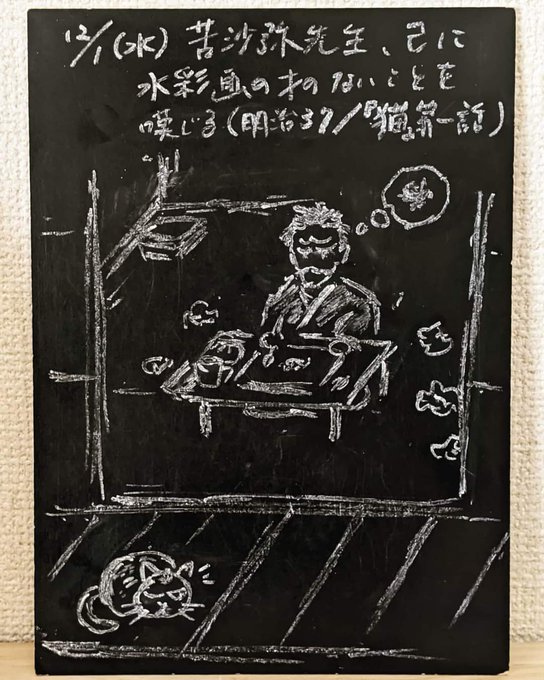 12/1(水) 苦沙弥先生、己に
水彩画の才のないことを
嘆じる(明治37/『猫』第一話)